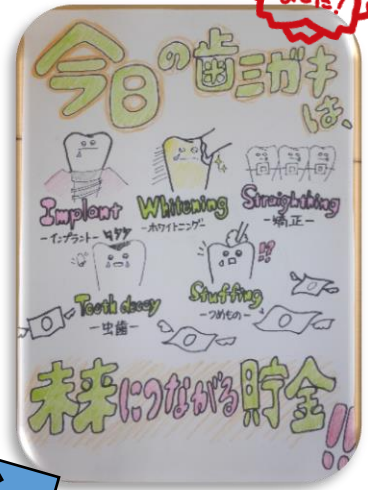 今日の歯ミガキは、
Implant
-インプラント-
Whitening
-ホワイトニング-
Straighthing
-矯正-
Tooth decay
-虫歯-
Stuffing
-つめもの-
!?
未来につながる貯金!!